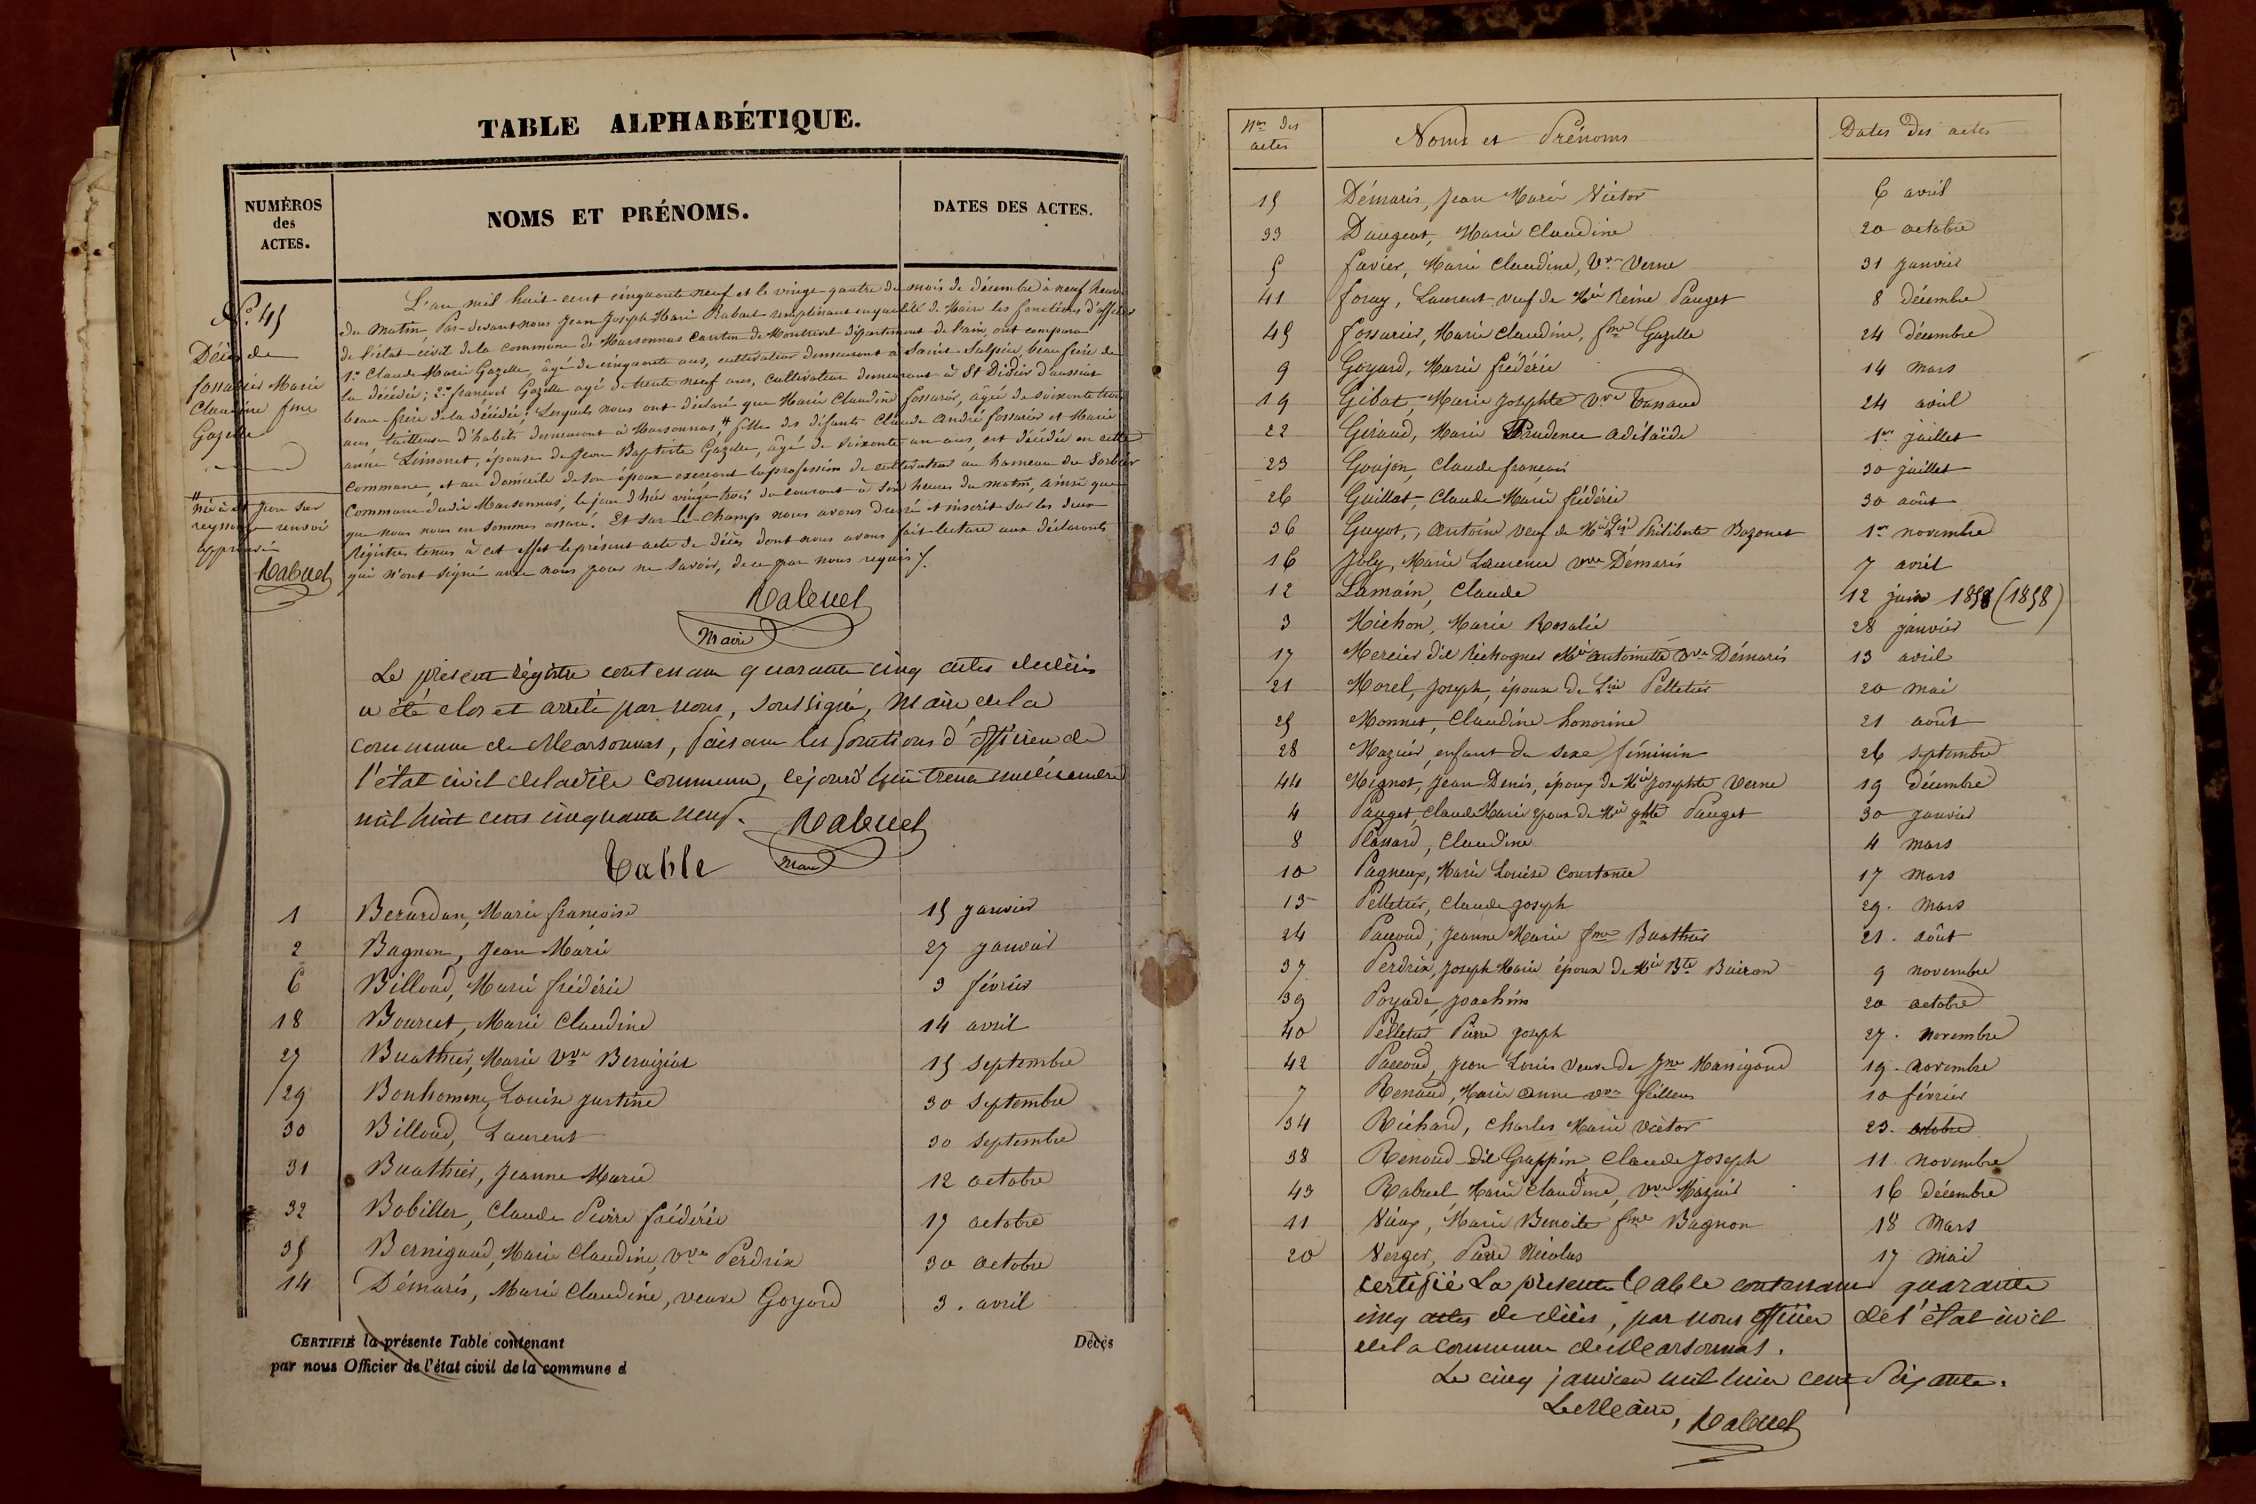 TABLE ALPHABÉTIQUE.
NUMÉROS des ACTES.
NOMS ET PRÉNOMS.
DATES DES ACTES.
N.º 45
Décès de
fossurier Marie
Claudine fme
Gazelle
L'an mil huit cent cinquante neuf et le vingt quatre du mois de décembre à neuf heures
du matin, Par-devant nous Jean Joseph Marie Rabuel remplissant en qualité de Maire les fonctions d'officier
de l'état-civil de la commune de Marsonnas canton de Montrevel département de l'ain, ont comparu
1º Claude Marie Gazelle, âgé de cinquante ans, cultivateur demeurant à Saint-Sulpice, beau frère de
la décédée; 2º françois Gazelle agé de trente neuf ans, cultivateur demeurant à St Didier d'aussiat
beau frère de la décédée; Lesquels nous ont déclaré que Marie Claudine fossurier, âgée de soixante trois
ans, tailleuse d'habits demeurant à Marsonnas, # fille des défunts Claude André fossurier et Marie
anne Limonet, épouse de Jean Baptiste Gazelle, âgé de soixante un ans, est décédée en cette
commune, et au domicile de son époux exerçant la profession de cultivateur au hameau du Sorbier
Commune dudit Marsonnas, le jour d'hier vingt trois du courant à six heures du matin, ainsi que
que nous nous en sommes assuré. Et sur-le-champ nous avons dressé et inscrit sur les deux
Régistres tenus à cet effet le présent acte de décès dont nous avons fait lecture aux déclarants
qui n'ont signé avec nous pour ne savoir, de ce par nous requis /.
renvoi
approuvé
Rabuel
Rabuel
Maire
Le présent régistre contenant quarante cinq actes de décès
a été clos et arrêté par nous, soussigné, Maire de la
commune de Marsonnas, faisant les fonctions d'officier de
l'état civil de ladite commune, le jourd'hui trente un décembre
mil huit cent cinquante neuf. Rabuel
Maire
Table
1 Berardan, Marie françoise 15 janvier
2 Bagnon, Jean Marie 27 janvier
6 Billoud, Marie frédérie 3 février
18 Bourcet, Marie Claudine 14 avril
27 Buathier, Marie vve Beraiziat 15 septembre
29 Bonhomme, Louise Justine 30 septembre
30 Billoud, Laurent 30 septembre
31 Buathier, Jeanne Marie 12 octobre
32 Bobiller, Claude Pierre frédérie 17 octobre
35 Bernigaud, Marie Claudine, vve Perdrix 30 octobre
14 Démaris, Marie Claudine, veuve Goyard 3. avril
CERTIFIÉ la présente Table contenant Décès
par nous Officier de l'état civil de la commune d
Nos des actes
Noms et Prénoms
Dates des actes
15 Démaris, Jean Marie Victor 6 avril
33 Daugeat, Marie Claudine 20 octobre
5 favier, Marie Claudine, Vve Verne 31 janvier
41 foray, Laurent veuf de Mie Reine Pauget 8 décembre
45 fossurier, Marie Claudine, fme Gazelle 24 décembre
9 Goyard, Marie frédérie 14 mars
19 Gibat, Marie Josephte vve Tussaud 24 avril
22 Giraud, Marie Prudence Adélaïde 1er juillet
23 Goujon, Claude françois 30 juillet
26 Guillat, Claude Marie frédérie 30 août
36 Guyot, Antoine veuf de Philiberte Bozonet 1er novembre
16 Joly, Marie Laurence vve Démaris 7 avril
12 Lamain, Claude 12 juin 1858 (1858)
3 Michon, Marie Rosalie 28 janvier
17 Mercier dit Mie antoinette vve Démaris 13 avril
21 Morel, Joseph, époux de Lse Pelletier 20 mai
25 Monnet, Claudine honorine 21 août
28 Mazuir, enfant du sexe féminin 26 septembre
44 Mignot, Jean Denis, époux de Mie Josephte Verne 19 décembre
4 Pauget, Claude Marie époux de Mie Jhte Pauget 30 janvier
8 Plassard, Claudine 4 mars
10 Pagneux, Marie Louise Constance 17 mars
13 Pelletier, Claude Joseph 29. Mars
24 Paccoud, Jeanne Marie fme Buathier 21. août
37 Perdrix, Joseph Marie époux de Mie Bte Buiron 9 novembre
39 Poyade, Joachim 20 octobre
40 Pelletier Pierre Joseph 27. novembre
42 Paccoud, Jean Louis veuf de Jne Manigand 19. novembre
7 Renaud, Marie anne vve feillens 10 février
34 Richard, Charles Marie Victor 23. octobre
38 Renaud dit Grappin, Claude Joseph 11. novembre
43 Rabuel Marie Claudine, vve Mazuir 16 décembre
11 Vieux, Marie Benoite fme Bagnon 18 Mars
20 Verger, Pierre Nicolas 17 mai
certifié La présente Table contenant quarante
cinq actes de décès, par nous officier de l'état civil
de la commune de Marsonnas.
Le cinq janvier mil huit cent soixante.
Le Maire, Rabuel